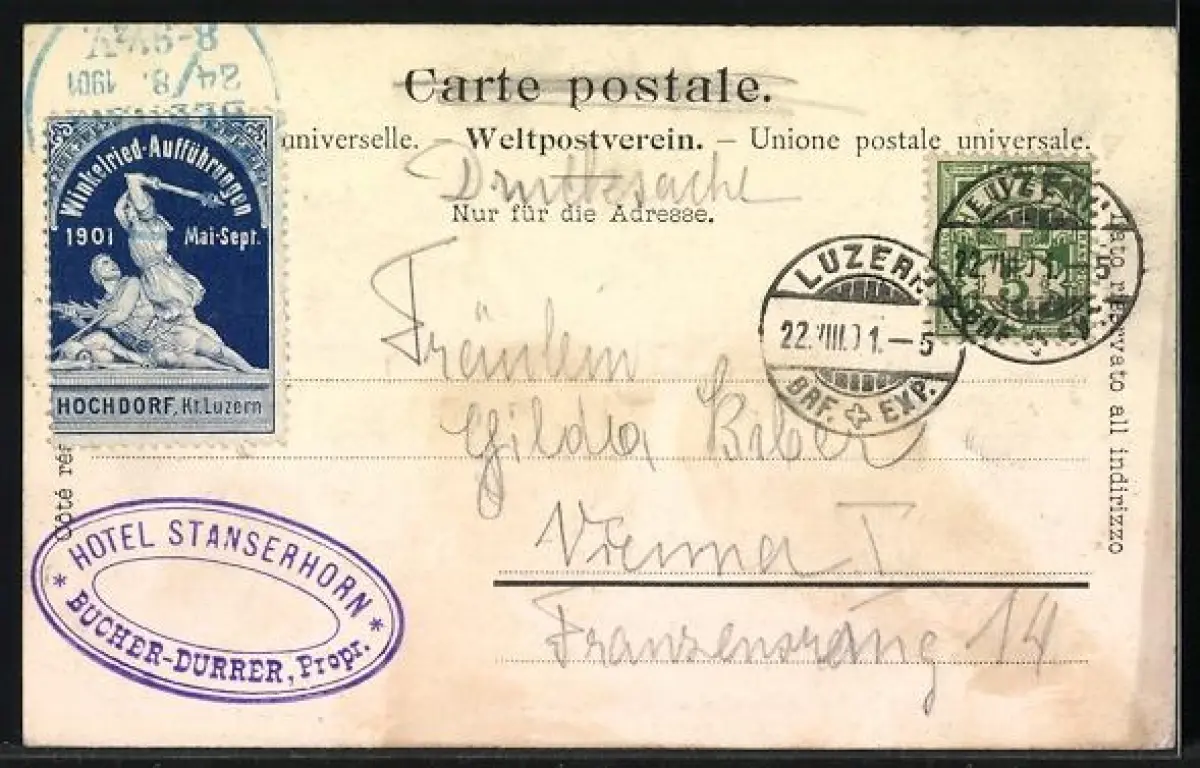 8-9½V.
24/8. 1901
Carte postale.
universelle. – Weltpostverein. – Unione postale universale.
Drucksache
Nur für die Adresse.
Winkelried-Aufführungen
1901 Mai-Sept.
HOCHDORF, Kt. Luzern
LUZERN
22.VIII.01.–5
BRF. EXP.
LUZERN
22.VIII.01.–5
BRF. EXP.
5
Fräulein
Gilda Biber
Vienna I
Franzensring 14
Côté rés
ato riservato all indirizzo
* HOTEL STANSERHORN *
BUCHER-DURRER, Propr.